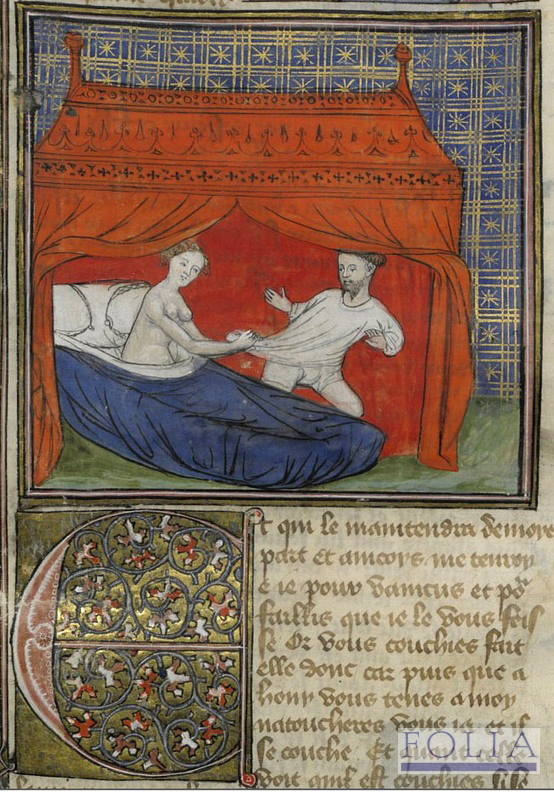 Et qui le maintendra demore
part Et aincors me tenroy
e ie pour vaincus et po
faillis que ie le vous feis
se Or vous couchies fait
elle donc car puis que a
hony vous tenes a moy
natoucheres vous ia et il
se couche Et
voit quil est couchies
FOLIA